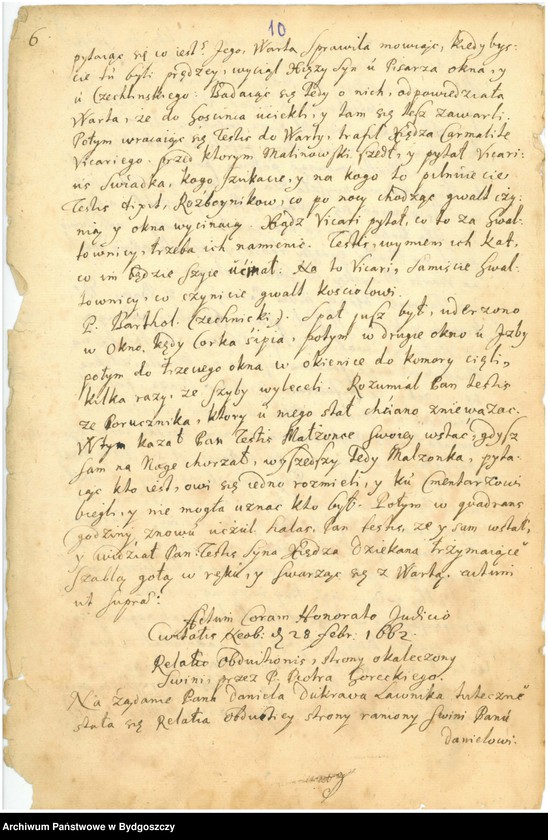 6
10
pytaiąc się co iest? Jego, Warta Sprawiła mowiąc, kiedybys-
cie tu byli prędzey, wyciął Xięzy Syn u Pisarza okna, y
u Czechlinskiego. Badaiąc się tedy o nich, odpowiedziała
Warta, ze do Gosunia uciekli, y tam się tesz zawarli.
Potym wracaiąc się Testis do Warty, trafił Xiędza Carmelitę
Vicariego, przed ktorym Malinowski szedł, y pytał Vicari-
us Swiadka, kogo szukacie, y na kogo to pilnuiecie
Testis dixit, Rozboynikow, co po nocy chodząc gwałt czy-
nią y okna wycinaią. Xiądz Vicari pytał, co to za Gwał-
townicy, trzeba ich namienić. Testis, wymieni ich kat,
co im będzie szyie ucinał. Na to Vicari, samiście Gwał-
townicy, co czynicie gwałt kosciołowi.
P. Barthol. Czechnicki. Spał jusz był, uderzono
w okno, kędy Corka sipia, potym w drugie okno u Izby
potym do trzeciego okna w okienice do komory cięli,
kilka razy, ze szyby wyleceli. Rozumiał Pan testis
ze Porucznika, ktory u niego stał chciano zniewazac.
Wtym kazał Pan Testis Małzonce swoiey wstac, gdysz
sam na Nogę chorzał, wyszedszy tedy Malzonka, pyta-
iąc kto iest, owi się iedno rozmieli, y ku Cmentarzowi
biegli, y nie mogła uznac kto był. Potym w quadrans
godziny, znowu uczuł hałas, Pan testis, ze y sam wstał,
y widział Pan Testis Syna Xiędza Dziekana trzymaiące°
Szablą gołą w ręku, y swarząc się z Wartą,
ut supra.
Actum Coram Honorato Judicio
Civitatis 28 Febr: 1662.
Relatio Obductionis, strony okaleczony
Swini, przez P. Piotra Goreckiego.
Na ządanie Pana Daniela Dukrawa Ławnika tuteczne°
stała się Relatia Obductiey strony raniony Swini Panu
Danielowi.
Archiwum Państwowe w Bydgoszczy